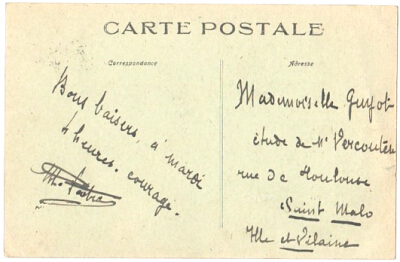 CARTE POSTALE
Correspondance
Adresse
Bons baisers, à mardi
4 heures. courage.
Mademoiselle Guyot
étude de Me Vercoutère
rue de Toulouse
Saint Malo
Ille et Vilaine